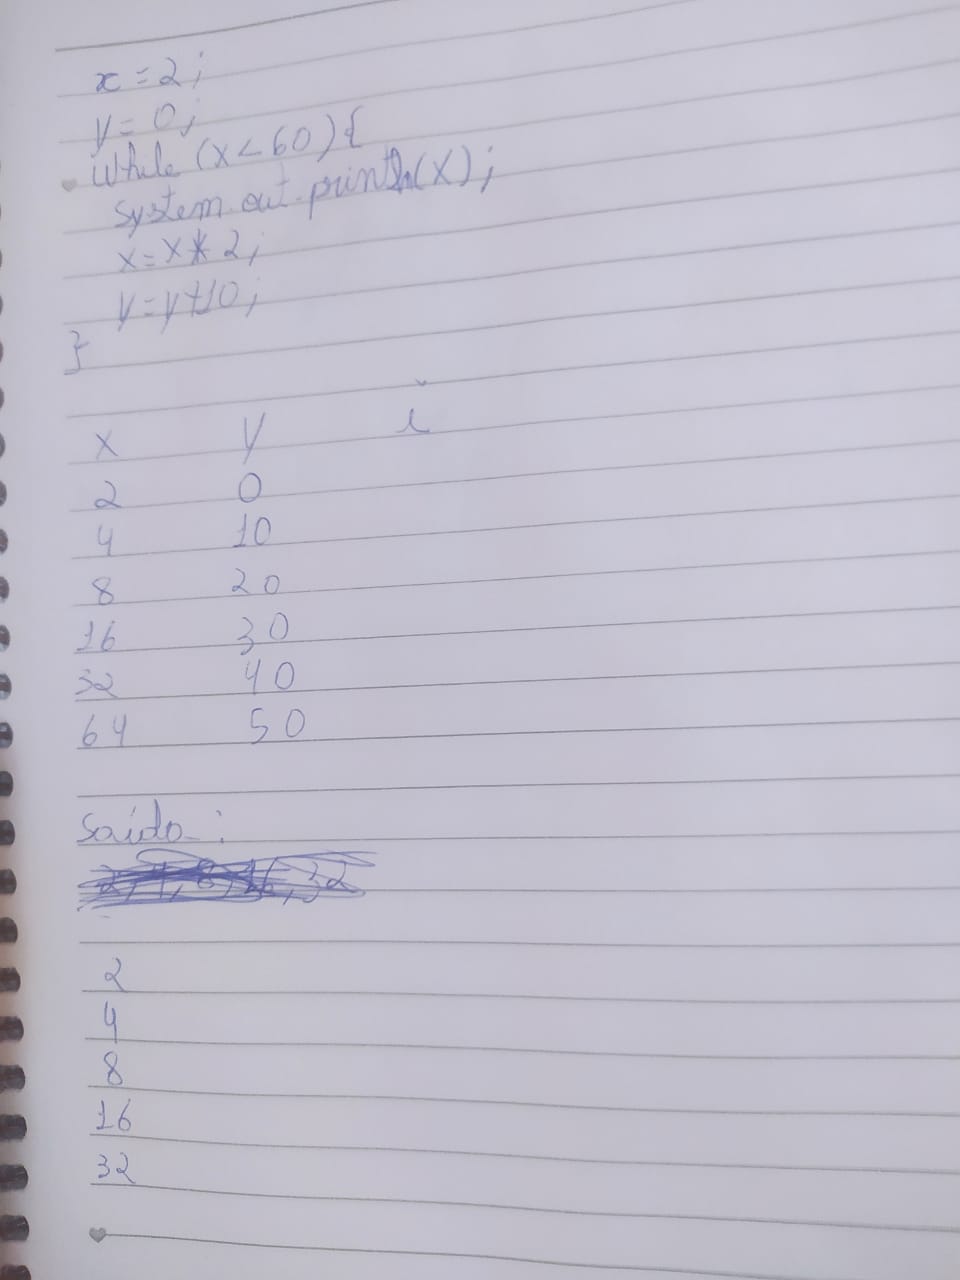 x = 2;
y = 0;
While (x < 60) {
System.out.println(x);
x = x * 2;
y = y + 10;
}
x y i
2 0
4 10
8 20
16 30
32 40
64 50
Saída:
2, 4, 8, 16, 32
2
4
8
16
32